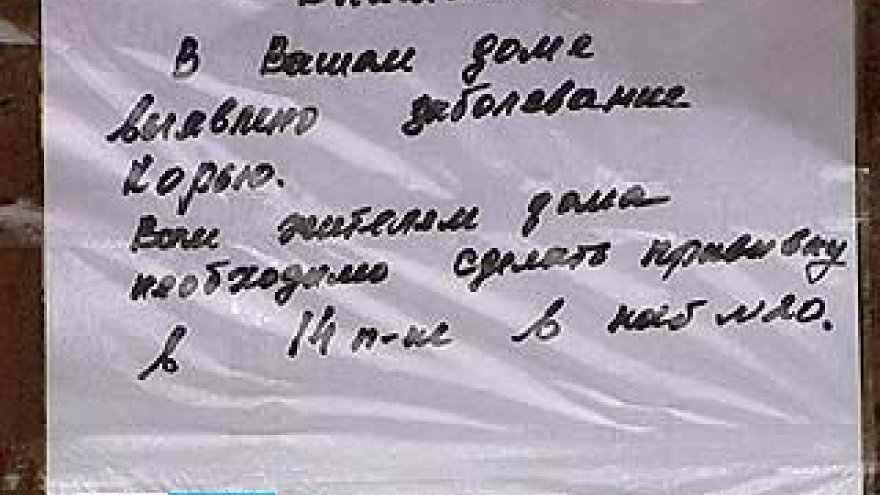 В Вашем доме
выявлено заболевание
Корью.
Всем жителям дома
необходимо сделать прививку
в 14 п-ке в каб №20.